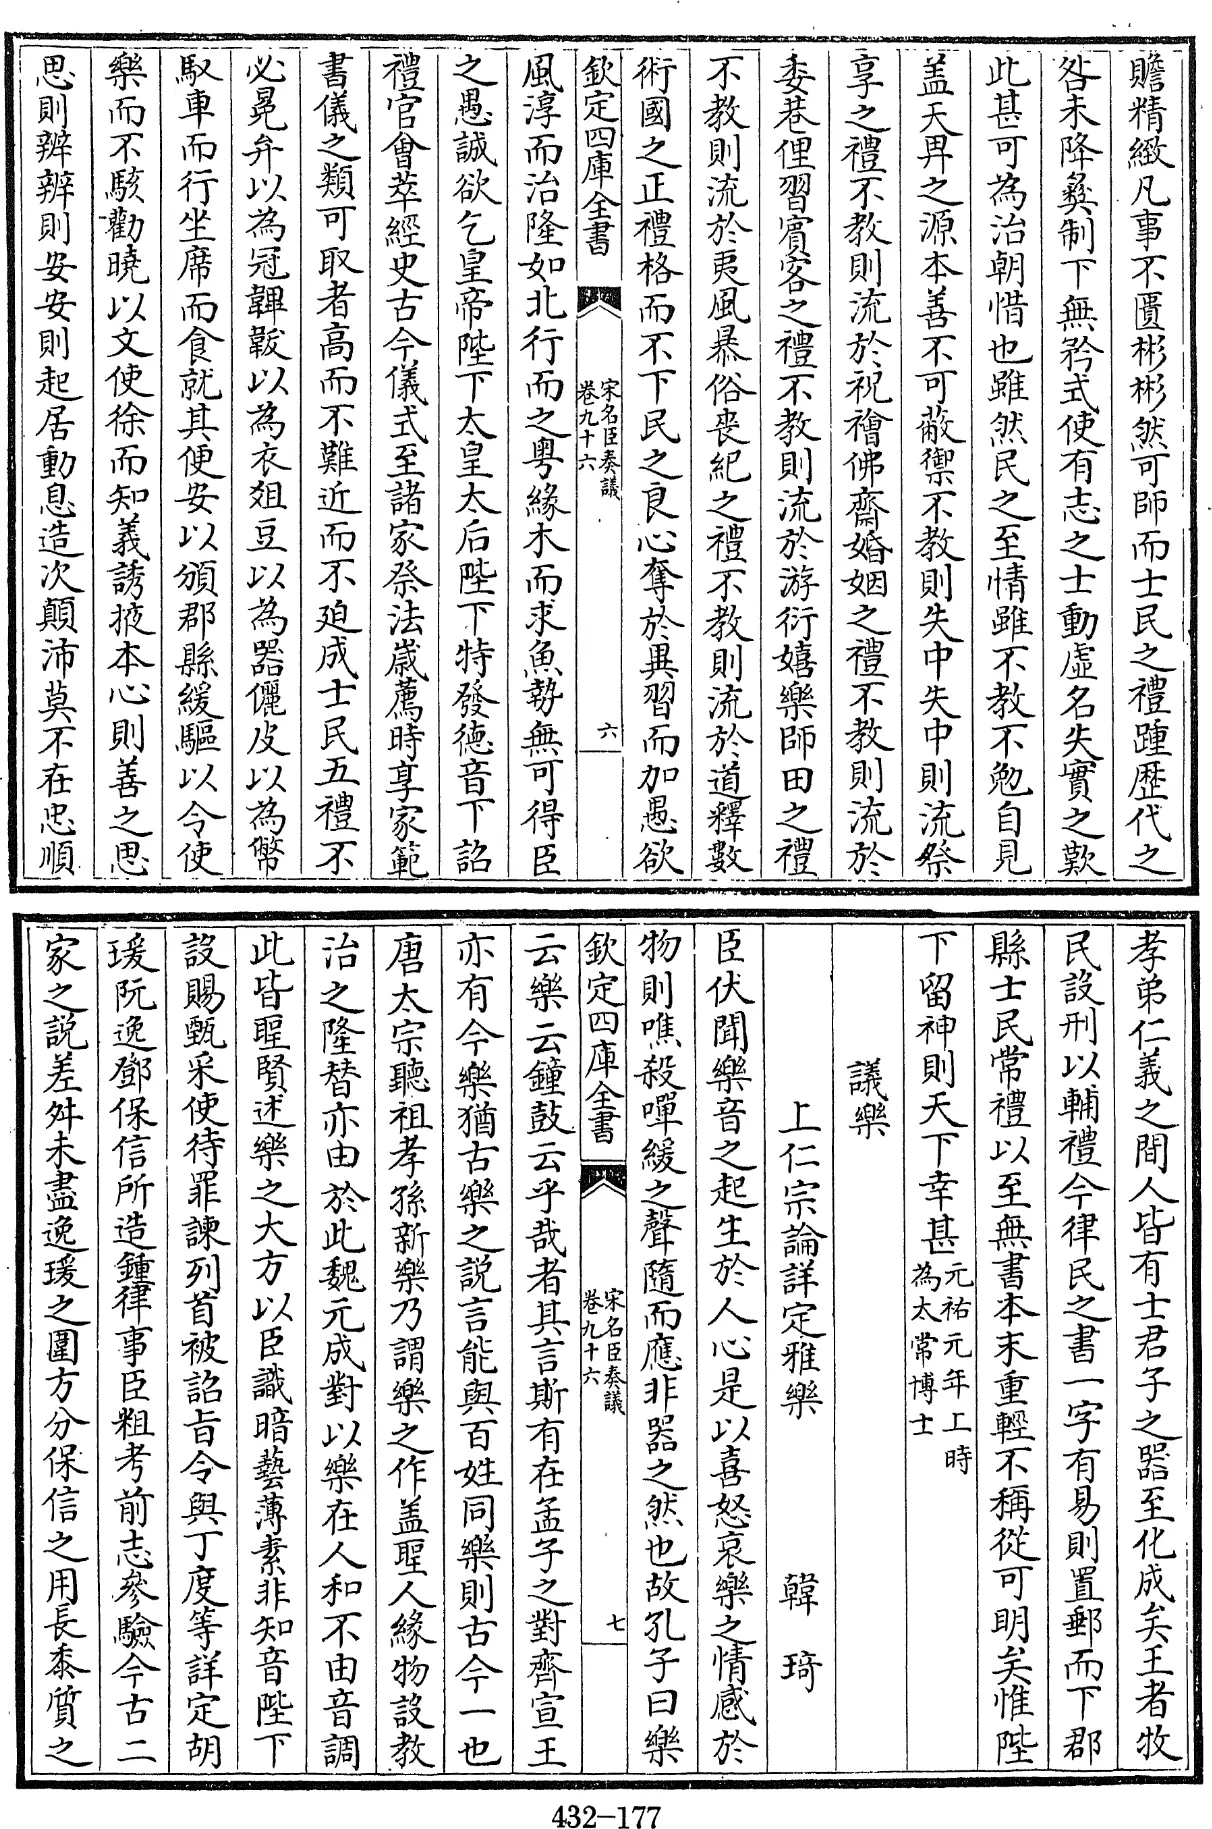 贍精緻凡事不匱彬彬然可師而士民之禮踵歴代之
咎未降彜制下無矜式使有志之士動虛名失實之歎
此甚可為治朝惜也雖然民之至情雖不教不勉自見
盖天畀之源本善不可蔽禦不教則失中失中則流祭
享之禮不教則流於祝禬佛齋婚姻之禮不教則流於
委巷俚習賓客之禮不教則流於游衍嬉樂師田之禮
不教則流於夷風暴俗喪紀之禮不教則流於道釋數
術國之正禮格而不下民之良心奪於異習而加愚欲
欽定四庫全書
宋名臣奏議
卷九十六
六
風淳而治隆如北行而之粤緣木而求魚勢無可得臣
之愚誠欲乞皇帝陛下太皇太后陛下特發德音下詔
禮官會萃經史古今儀式至諸家祭法歲薦時享家範
書儀之類可取者高而不難近而不廹成士民五禮不
必冕弁以為冠韠韍以為衣俎豆以為器儷皮以為幣
馭車而行坐席而食就其便安以頒郡縣緩驅以令使
樂而不駭勸曉以文使徐而知義誘掖本心則善之思
思則辨辨則安安則起居動息造次顛沛莫不在忠順
孝弟仁義之間人皆有士君子之器至化成矣王者牧
民設刑以輔禮今律民之書一字有易則置郵而下郡
縣士民常禮以至無書本末重輕不稱從可明矣惟陛
下留神則天下幸甚元祐元年上時
為太常博士
議樂
上仁宗論詳定雅樂　韓琦
臣伏聞樂音之起生於人心是以喜怒哀樂之情感於
物則噍殺嘽緩之聲隨而應非器之然也故孔子曰樂
欽定四庫全書
宋名臣奏議
卷九十六
七
云樂云鐘鼓云乎哉者其言斯有在孟子之對齊宣王
亦有今樂猶古樂之說言能與百姓同樂則古今一也
唐太宗聽祖孝孫新樂乃謂樂之作盖聖人緣物設教
治之隆替亦由於此魏元成對以樂在人和不由音調
此皆聖賢述樂之大方以臣識暗藝薄素非知音陛下
設賜甄采使待罪諫列首被詔旨令與丁度等詳定胡
瑗阮逸鄧保信所造鍾律事臣粗考前志參驗今古二
家之說差舛未盡逸瑗之圍方分保信之用長黍質之
432-177